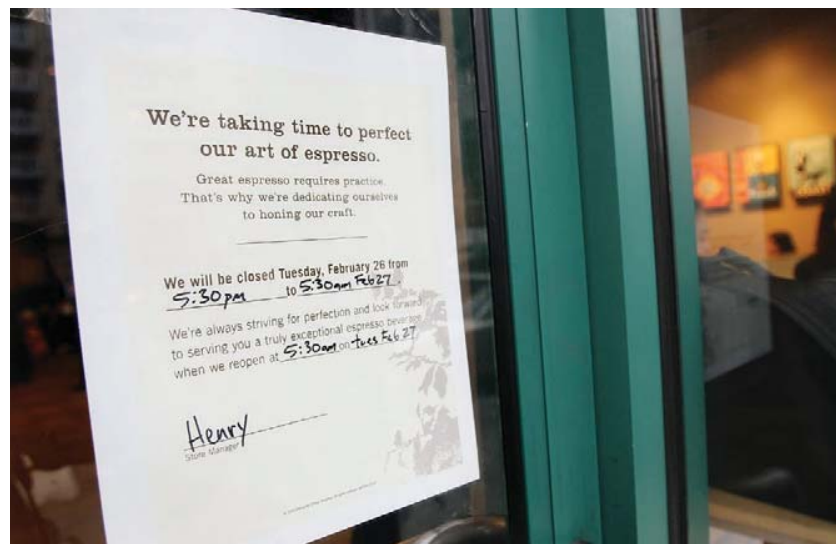 We're taking time to perfect
our art of espresso.
Great espresso requires practice.
That's why we're dedicating ourselves
to honing our craft.
We will be closed Tuesday, February 26 from
5:30pm to 5:30am Feb 27.
We're always striving for perfection and look forward
to serving you a truly exceptional espresso beverage
when we reopen at 5:30am on tues Feb 27
Henry
Store Manager